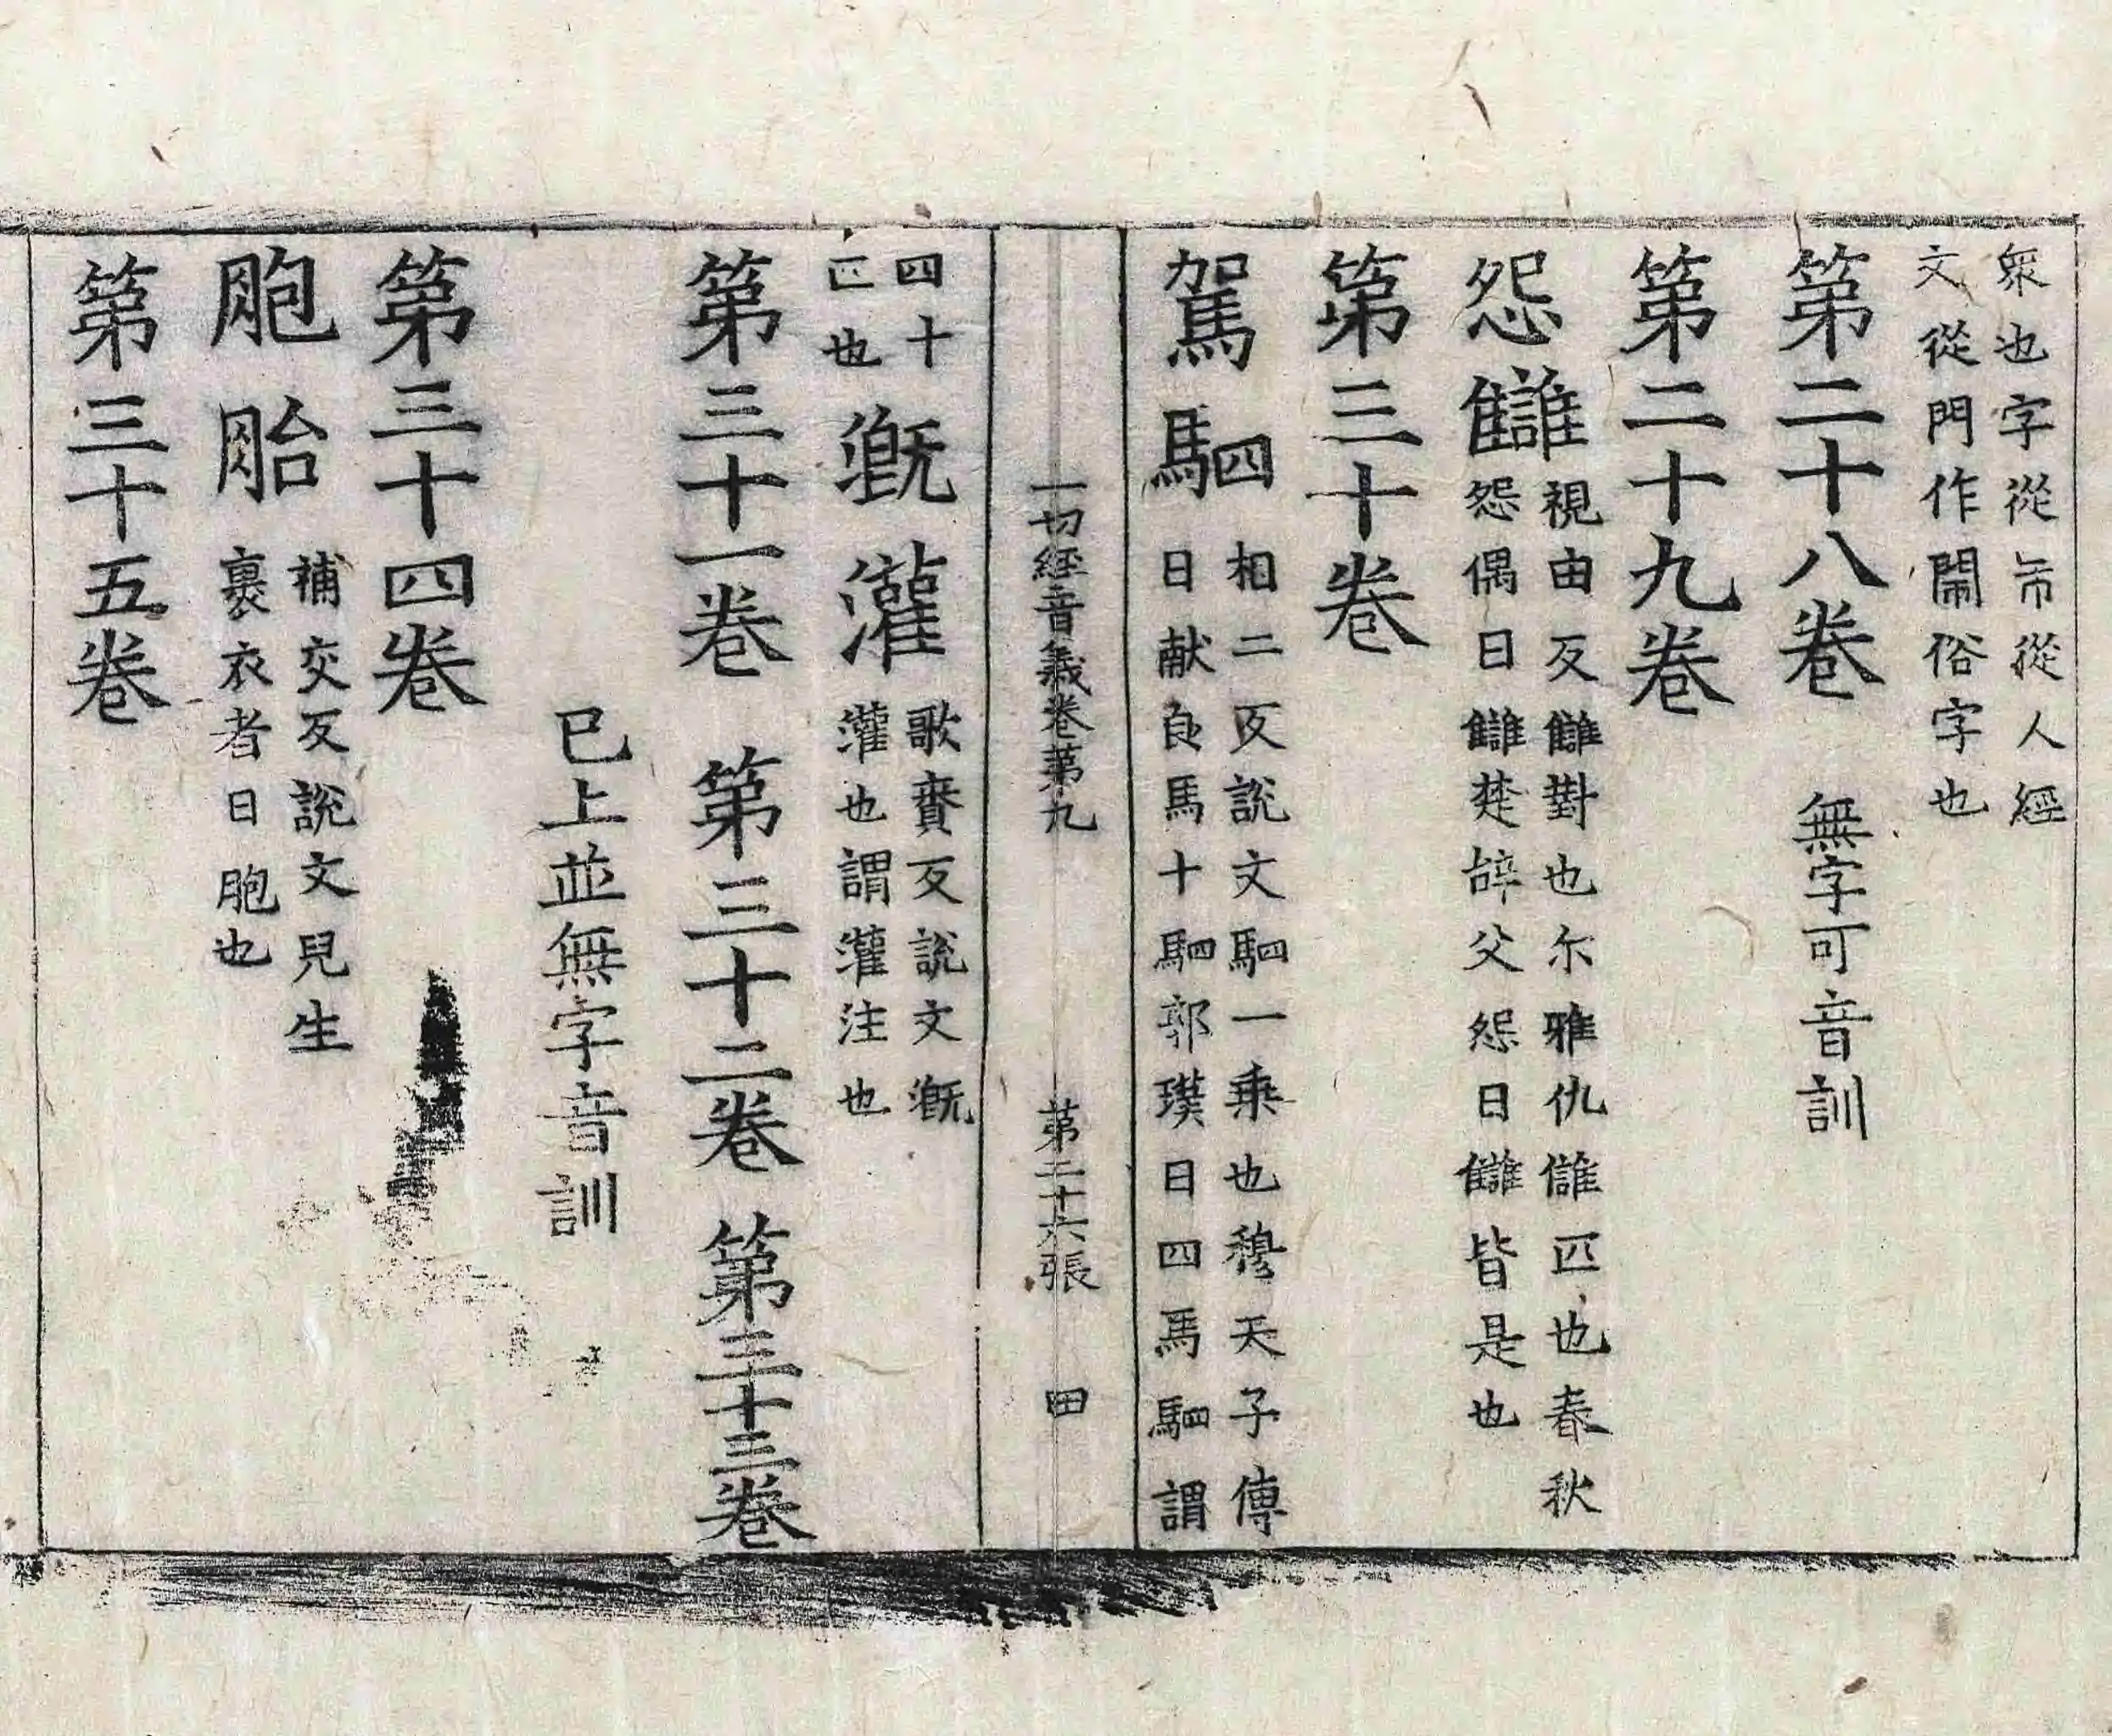 衆也字從巿從人經
文從門作閙俗字也
第二十八卷 無字可音訓
第二十九卷
怨讎
視由反讎對也尓雅仇讎匹也春秋
怨偶曰讎楚辝父怨曰讎皆是也
第三十卷
駕駟
相二反說文駟一乗也穆天子傳
曰献良馬十駟郭璞曰四馬駟謂
一切經音義卷第九 第二十六張 田
四十
匹也
溉灌
歌賫反說文溉
灌也謂灌注也
第三十一卷 第三十二卷 第三十三卷
已上並無字音訓
第三十四卷
胞胎
補交反說文兒生
裹衣者曰胞也
第三十五卷